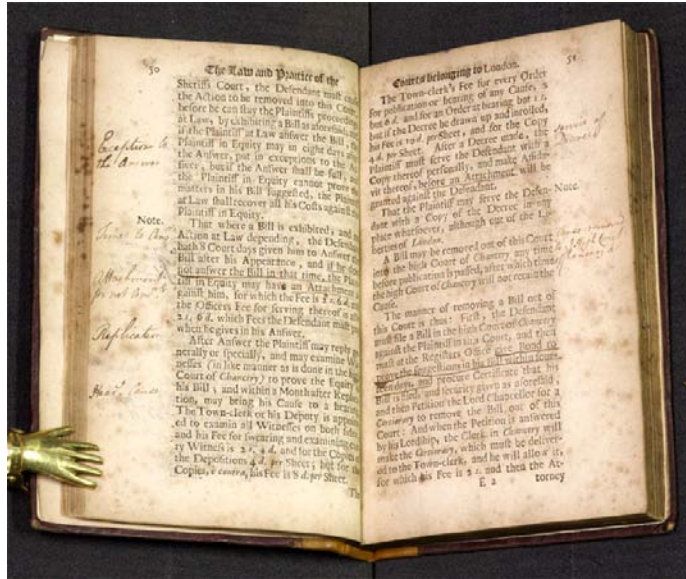 50
The Law and Practice of the
Sheriffs Court, the Defendant must cause
the Action to be removed into this Court,
before he can stay the Plaintiffs proceedings
at Law, by exhibiting a Bill as aforesaid; and
if the Plaintiff at Law answer the Bill, the
Plaintiff in Equity may in eight days after
the Answer, put in exceptions to the An-
swer, but if the Answer shall be full, and
the Plaintiff in Equity cannot prove the
matters in his Bill suggested, the Plaintiff
at Law shall recover all his Costs against the
Plaintiff in Equity.
Exception to
the Answer
Note.
That where a Bill is exhibited, and no
Action at Law depending, the Defendant
hath 8 Court days given him to Answer the
Bill after his Appearance, and if he doth
not answer the Bill in that time, the Plain-
tiff in Equity may have an Attachment a-
gainst him, for which the Fee is 2 s. 6 d. and
the Officers Fee for serving thereof is also
2 s. 6 d. which Fees the Defendant must pay
when he gives in his Answer.
Attachment
for not
Replication
After Answer the Plaintiff may reply ge-
nerally or specially, and may examine Wit-
nesses (in like manner as is done in the high
Court of Chancery) to prove the Equity of
his Bill; and within a Month after Replica-
tion, may bring his Cause to a hearing.
The Town-clerk or his Deputy is appoint-
ed to examin all Witnesses on both sides,
and his Fee for swearing and examining eve-
ry Witness is 2 s. 4 d. and for the Copies of
the Depositions 4 d. per Sheet; but for the
Copies, e contra, his Fee is 8 d. per Sheet.
The
Courts belonging to London.
51
The Town-clerk's Fee for every Order
for publication or hearing of any Cause, is
but 6 d. and for an Order at hearing but 1 s.
but if the Decree be drawn up and inrolled,
his Fee is 10 d. per Sheet, and for the Copy
4 d. per Sheet. After a Decree made, the
Plaintiff must serve the Defendant with a
Copy thereof personally, and make Affida-
vit thereof, before an Attachment will be
granted against the Defendant.
service of
That the Plaintiff may serve the Defen-
dant with a Copy of the Decree in any
place whatsoever, although out of the Li-
berties of London.
Note.
A Bill may be removed out of this Court
into the high Court of Chancery any time
before publication is passed, after which time
the high Court of Chancery will not retain the
Cause.
The manner of removing a Bill out of
this Court is thus: First, the Defendant
must file a Bill in the high Court of Chancery
against the Plaintiff in this Court, and then
must at the Registers Office give Bond to
prove the suggestions in his Bill within four-
teen days, and procure Certificate that his
Bill is filed, and security given as aforesaid,
and then Petition the Lord Chancellor for a
Certiorary to remove the Bill out of this
Court: And when the Petition is answered
by his Lordship, the Clerk in Chancery will
make the Certiorary, which must be deliver-
ed to the Town-clerk, and he will allow it,
for which his Fee is 2 s. and then the At-
E 2
torney